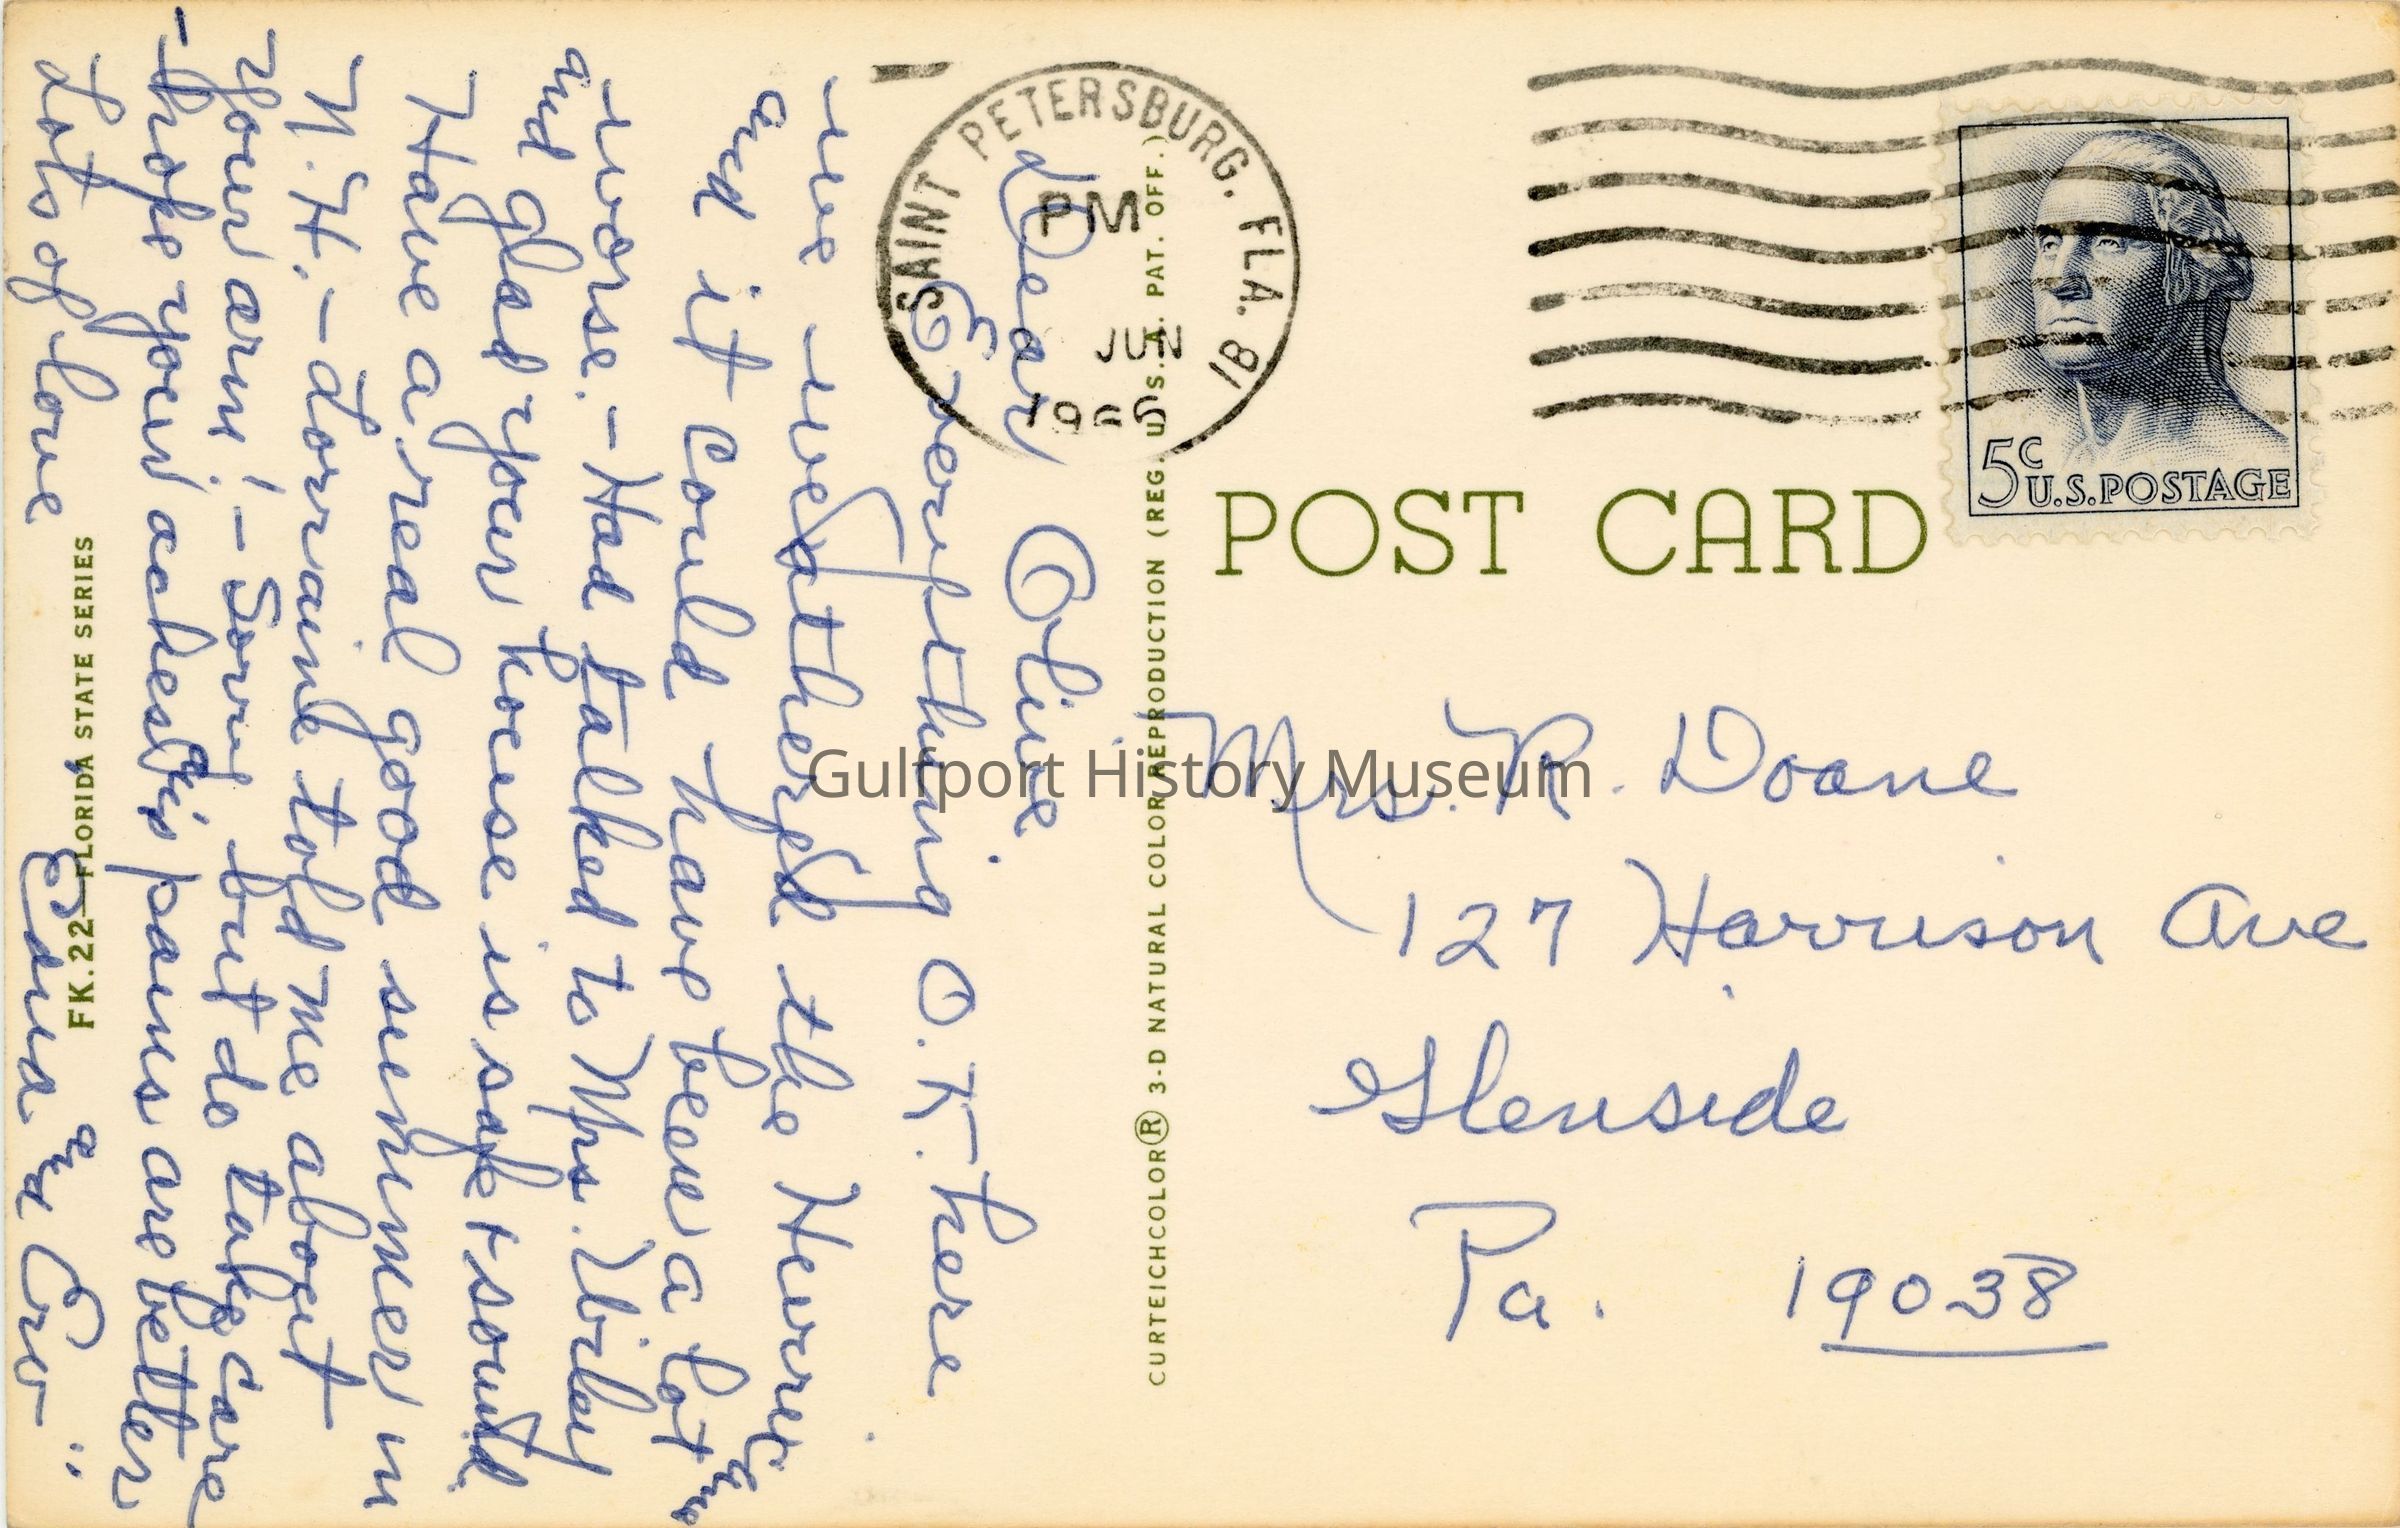 SAINT PETERSBURG, FLA. B1
PM
JUN
1966
5c
U.S. POSTAGE
POST CARD
Dear Olive
Everything O.K. here
we weathered the Hurricane
and it could have been a lot
worse. - Had talked to Mrs.
and glad your house is safe + sound
Have a real good summer in
N.H. - Lorraine told me about
your arm! - Sorry but do take care
- hope your aches & pains are better
Lots of love
Edna and
Mrs. R. Doane
127 Harrison Ave
Glenside
Pa. 19038
FK.22—FLORIDA STATE SERIES
CURTEICHCOLOR® 3-D NATURAL COLOR REPRODUCTION (REG. U.S.A. PAT. OFF.)
Gulfport History Museum